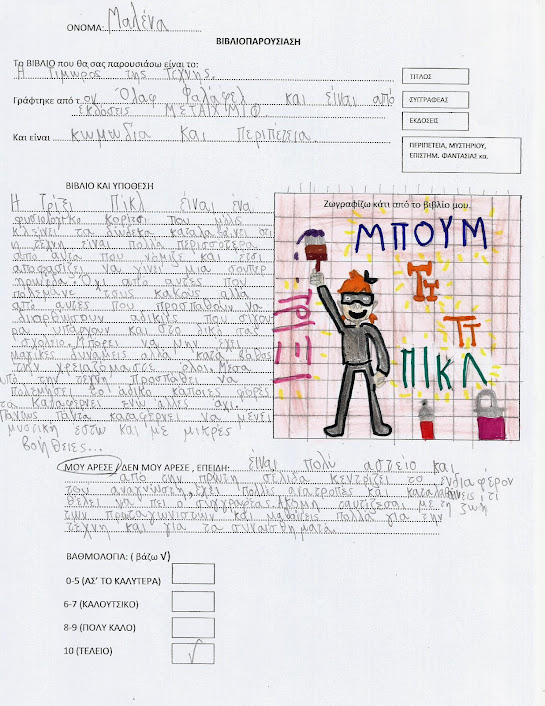 ΟΝΟΜΑ: Μαλένα
ΒΙΒΛΙΟΠΑΡΟΥΣΙΑΣΗ
Το ΒΙΒΛΙΟ που θα σας παρουσιάσω είναι το:
Η Τιμωρός της τέχνης.
ΤΙΤΛΟΣ
Γράφτηκε από τον Όλαφ Φαλάφελ και είναι από
ΣΥΓΓΡΑΦΕΑΣ
εκδόσεις ΜΕΤΑΙΧΜΙΟ
ΕΚΔΟΣΕΙΣ
Και είναι κωμωδία και περιπέτεια.
ΠΕΡΙΠΕΤΕΙΑ, ΜΥΣΤΗΡΙΟΥ,
ΕΠΙΣΤΗΜ. ΦΑΝΤΑΣΙΑΣ κα.
ΒΙΒΛΙΟ ΚΑΙ ΥΠΟΘΕΣΗ
Η Τρίξι Πικλ είναι ένα
φυσιολογικό κορίτσι που μόλις
κλείνει τα δώδεκα καταλαβαίνει οτι
η τέχνη είναι πολλά περισσότερα
από αυτά που νόμιζε και έτσι
αποφασίζει να γίνει μια σουπερ
ηρωίδα. Όχι από αυτές που
πολεμάνε τους κακούς αλλά
από αυτές που προσπαθούν να
διορθώσουν αδικίες που σίγου
ρα υπάρχουν και στο δικό σας
σχολείο. Μπορεί να μην έχει
μαγικές δυνάμεις αλλά κατά βάθος
την χρειαζόμαστε όλοι. Μέσα
από την τέχνη προσπαθεί να
πολεμήσει το άδικο κάποιες φορές
τα καταφέρνει ενώ άλλες όχι.
Πάντως πάντα καταφέρνει να μένει
μυστική έστω και με μικρές
βοήθειες...
Ζωγραφίζω κάτι από το βιβλίο μου.
ΜΠΟΥΜ
ΠΙΚΛ
ΜΟΥ ΑΡΕΣΕ / ΔΕΝ ΜΟΥ ΑΡΕΣΕ , ΕΠΕΙΔΗ: είναι πολύ αστείο και
από την πρώτη σελίδα κεντρίζει το ενδιαφέρον
του αναγνώστη, έχει πολλές ανατροπές και καταλαβαίνεις τι
θέλει να πει ο συγγραφέας. Ακόμη ταυτίζεσαι με τη ζωή
των πρωταγωνιστών και μαθαίνεις πολλά για την
τέχνη και για τα συναισθήματα.
ΒΑΘΜΟΛΟΓΙΑ: ( βάζω √)
0-5 (ΑΣ' ΤΟ ΚΑΛΥΤΕΡΑ)
6-7 (ΚΑΛΟΥΤΣΙΚΟ)
8-9 (ΠΟΛΥ ΚΑΛΟ)
10 (ΤΕΛΕΙΟ) √